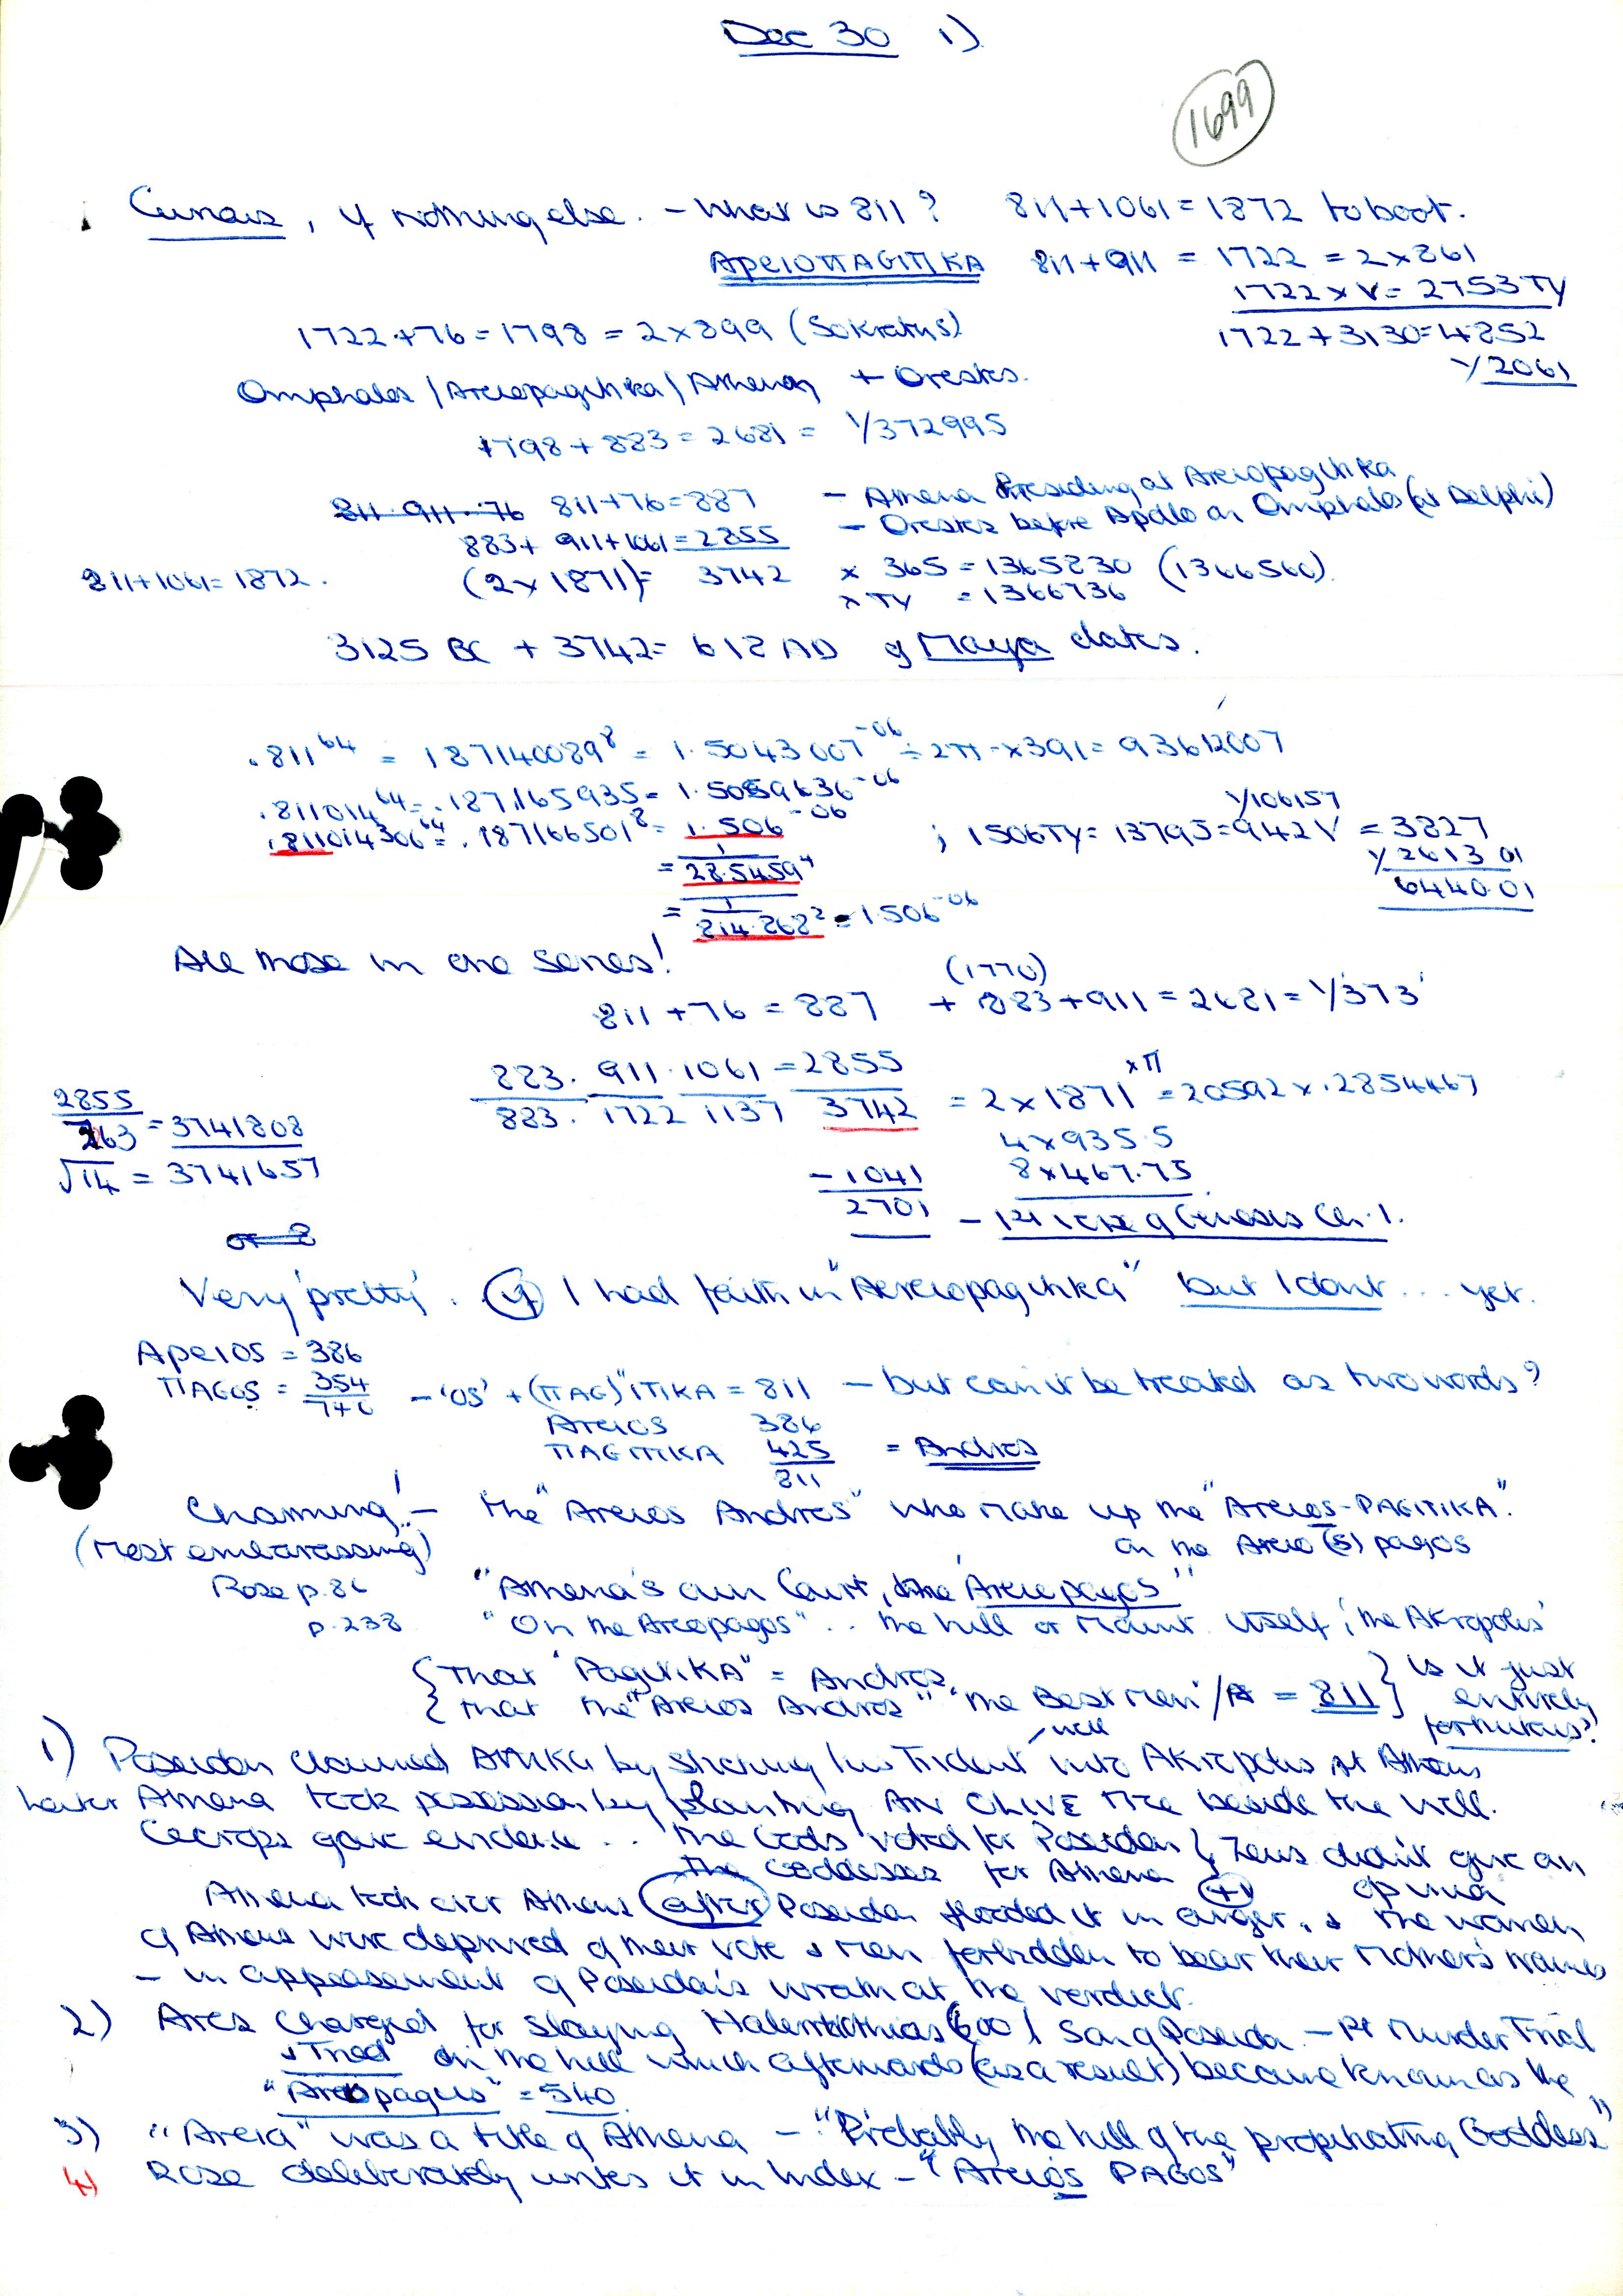 Dec 30 1)
1699
Curious, if nothing else. - What is 811? 811+1061=1872 to boot.
ApeIOΠAGITIKA 811+911 = 1722 = 2x861
1722 x V = 2753 TY
1722+76=1798=2x899 (Sokratus) 1722+3130=4852
Y/2061
Omphalos / Areiopagitika / Athena + Orestes.
1798+883=2681= 1/372995
811+76=887 - Athena Presiding at Areiopagitika
883+ 911+1061=2855 - Orestes before Apollo on Omphalos (at Delphi)
811+1061=1872. (2x1871)= 3742 x 365=1365830 (1366560)
x TY = 1366736
3125 BC + 3742= 618 AD of Maya dates.
.811^64 = 187140089^8 = 1.5043007^-06 ÷ 2π - x391= 93612007
.811014^64 = .187165935= 1.5059636^-06
.811014306^64 = .187166501^8 = 1.506^-06 ; 1506TY= 13795=942V = 3827
1/106157
Y 2613 01
6440.01
= 1/28.5459^4
= 1/814.868^2 = 1.506^-06
All those in one series!
(1770)
811+76=887 + 883+911=2681=1/373
883. 911. 1061 = 2855
883. 1722 1137 3742 = 2x1871 xπ =20592x.2854467
2855/763 = 3741808
4x935.5
√14 = 3741657
8x467.75
-1041
2701 - 1st verse of Genesis Ch. 1.
Very 'pretty'. (If) I had faith in "Aereiopagitika" but I dont ... yet.
ApeIOS = 386
ΠAGOS = 354 - 'OS' + (ΠAG)"ITIKA = 811 - but can it be treated as two words?
740
Areios 386
ΠAGITIKA 425 = Andros
811
Charming! - the "Areios Andros" who make up the "Areios-PAGITIKA".
(Most embarassing) on the Areio(s) pagos
Rose p.86 "Athena's own Court, the Areiopagos"
p.238 "On the Areopagos" .. the hill or mount itself, 'the Akropolis'
{ That "PagitiKA" = Andros,
{ that the "Areios Andros" 'the Best Men' = 811 } is it just entirely fortuitous?
1) Poseidon claimed Attika by sticking his Trident into Akropolis at Athens
well
Later Athena took possession by planting AN OLIVE Tree beside the well.
Cecrops gave evidence .. The Gods voted for Poseidon } Zeus didnt give an
The Goddesses for Athena } +1 opinion
Athena took over Athens (after) Poseidon flooded it in anger, & the women
of Athens were deprived of their vote & men forbidden to bear their Mother's names
- in appeasement of Poseidon's wrath at the verdict.
2) Ares charged for slaying Halirrhothias (600) Son of Poseidon - 1st Murder Trial
& Tried on the hill which afterwards (as a result) became known as the
"Areopagus" = 540.
3) "Areia" was a title of Athena - "Probably the hill of the propitiating Goddess"
4) Rose deliberately writes it in Index - "Areios PAGOS"